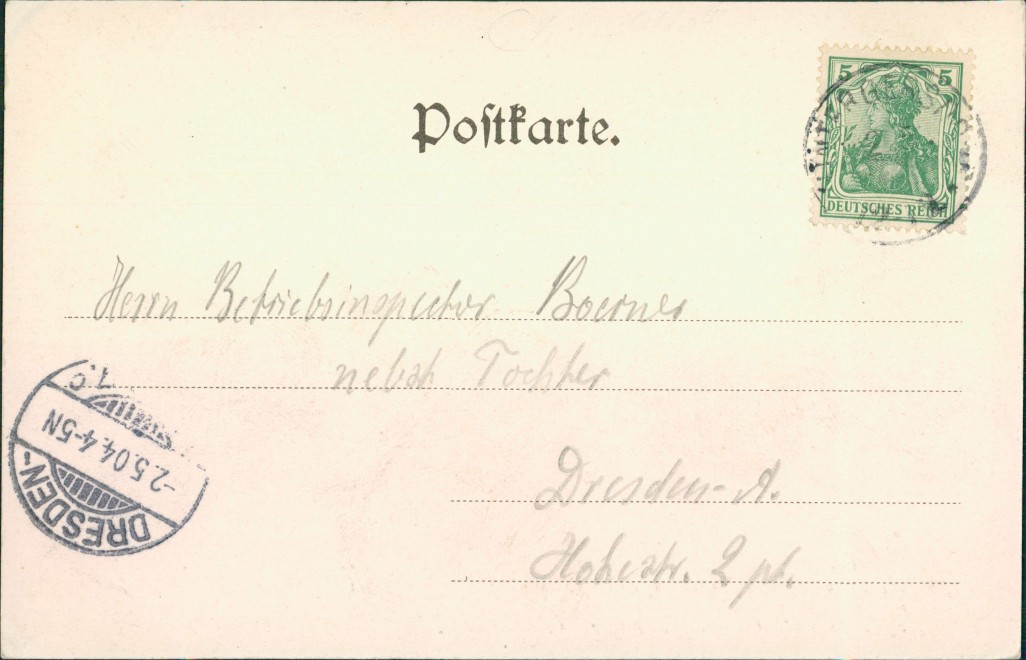 Postkarte.
5 5
DEUTSCHES REICH
Herrn Betriebsinspector Boerner
nebst Tochter
Dresden-A.
Hohestr. 2 pt.
DRESDEN-
-2.5.04.4-5N